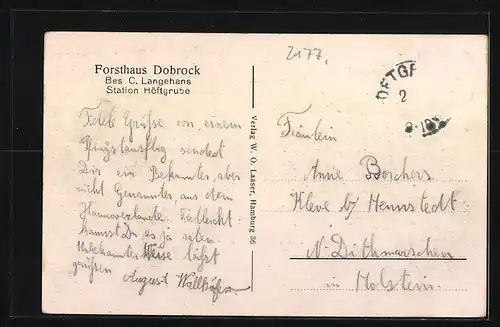 2177.
Forsthaus Dobrock
Bes C. Langehans
Station Höftgrube
Grüße von einem
Pfingstausflug sendet
Dir ein Bekannter, aber
nicht Genannter, aus dem
Hannoverlande. Vielleicht
kannst Du es ja raten.
Unbekannter Weise läßt
grüßen August
Verlag W. O. Laaser, Hamburg 36
2
Fräulein
Anne Borchers
Kleve b/ Hennstedt
N. Dithmarschen
in Holstein.